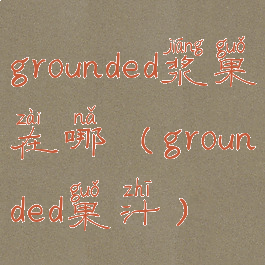 grounded浆果
在哪（groun
ded果汁）